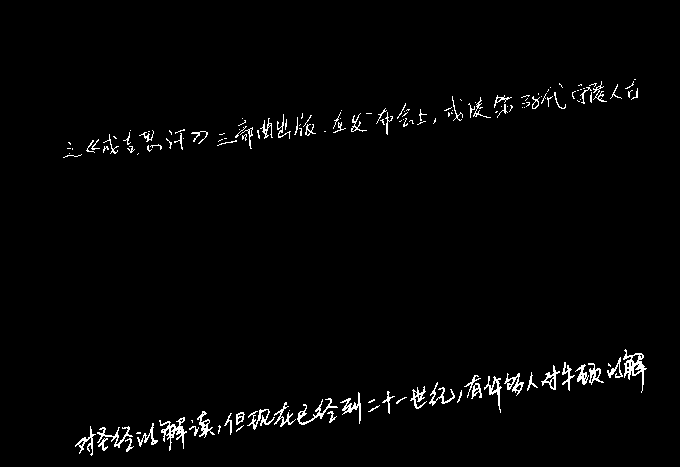 之《成吉思汗》三部曲出版.在发布会上,成陵第38代守陵人古
对圣经的解读,但现在已经到二十一世纪,有许多人对牛顿的解